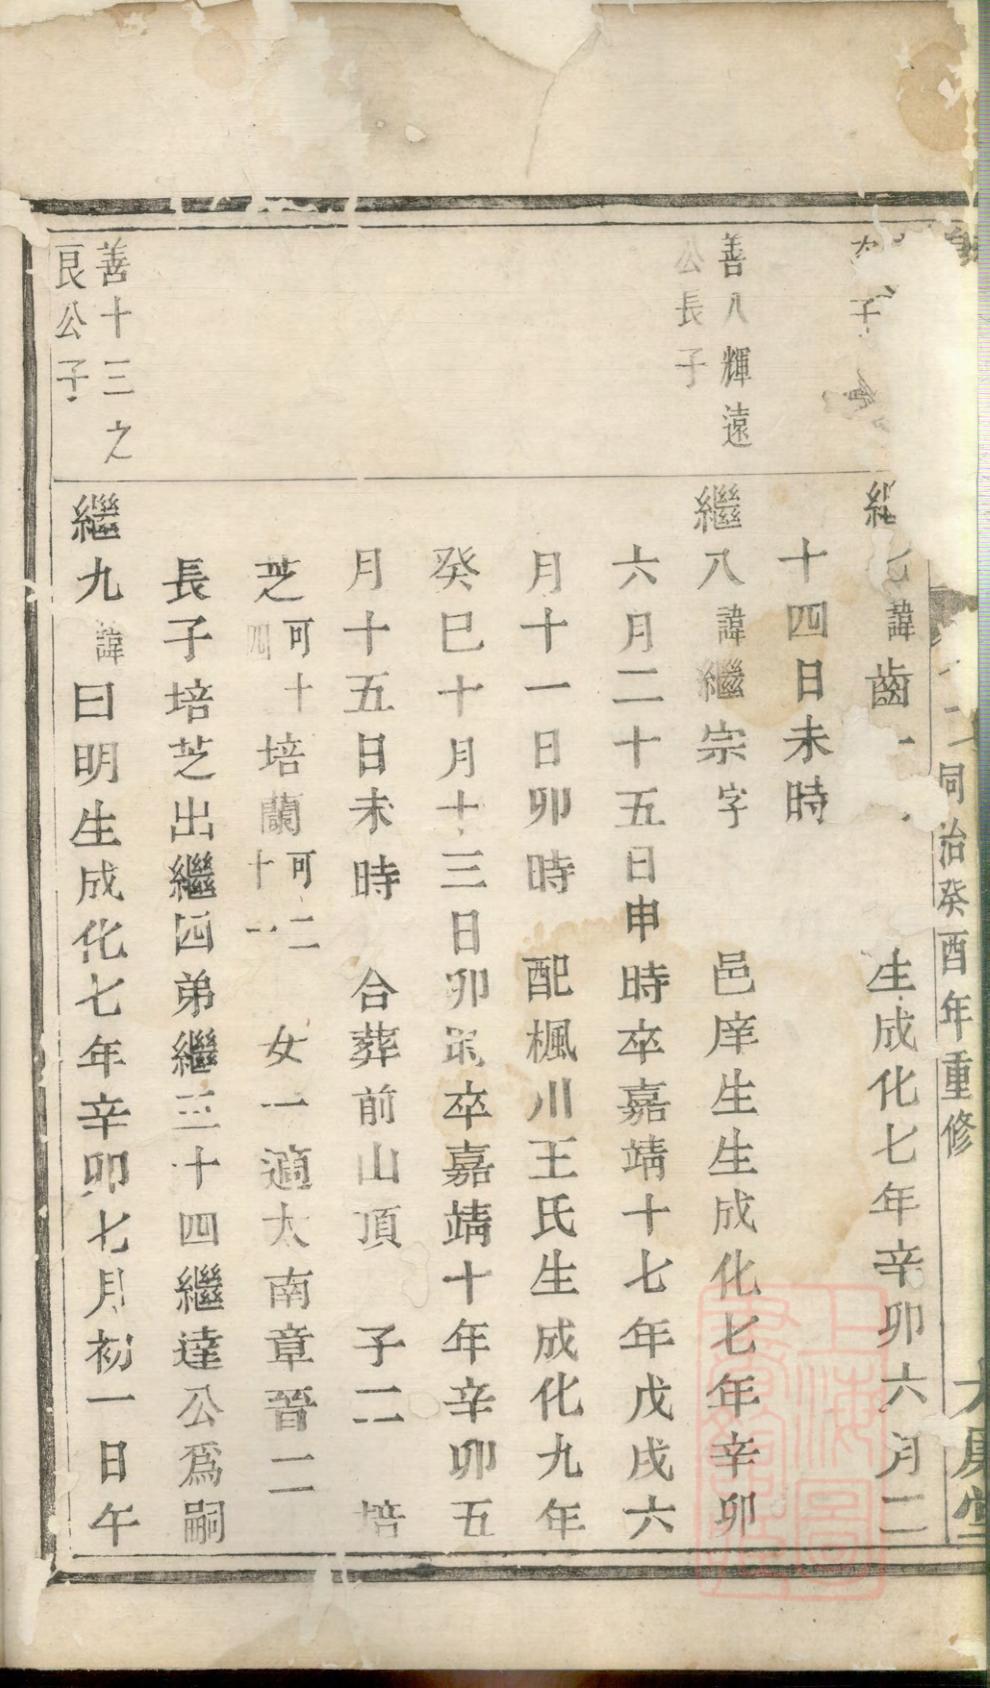 同治癸酉年重修
子
七諱齒一 生成化七年辛卯六月二
十四日未時
善八輝遠
公長子
繼八諱繼宗字 邑庠生生成化七年辛卯
六月二十五日申時卒嘉靖十七年戊戌六
月十一日卯時 配楓川王氏生成化九年
癸巳十月十三日卯時卒嘉靖十年辛卯五
月十五日未時 合葬前山頂 子二 培
芝可十四培蘭可二十一 女一適大南章晉二
長子培芝出繼四弟繼三十四繼達公爲嗣
善十三之
艮公子
繼九諱曰明生成化七年辛卯七月初一日午